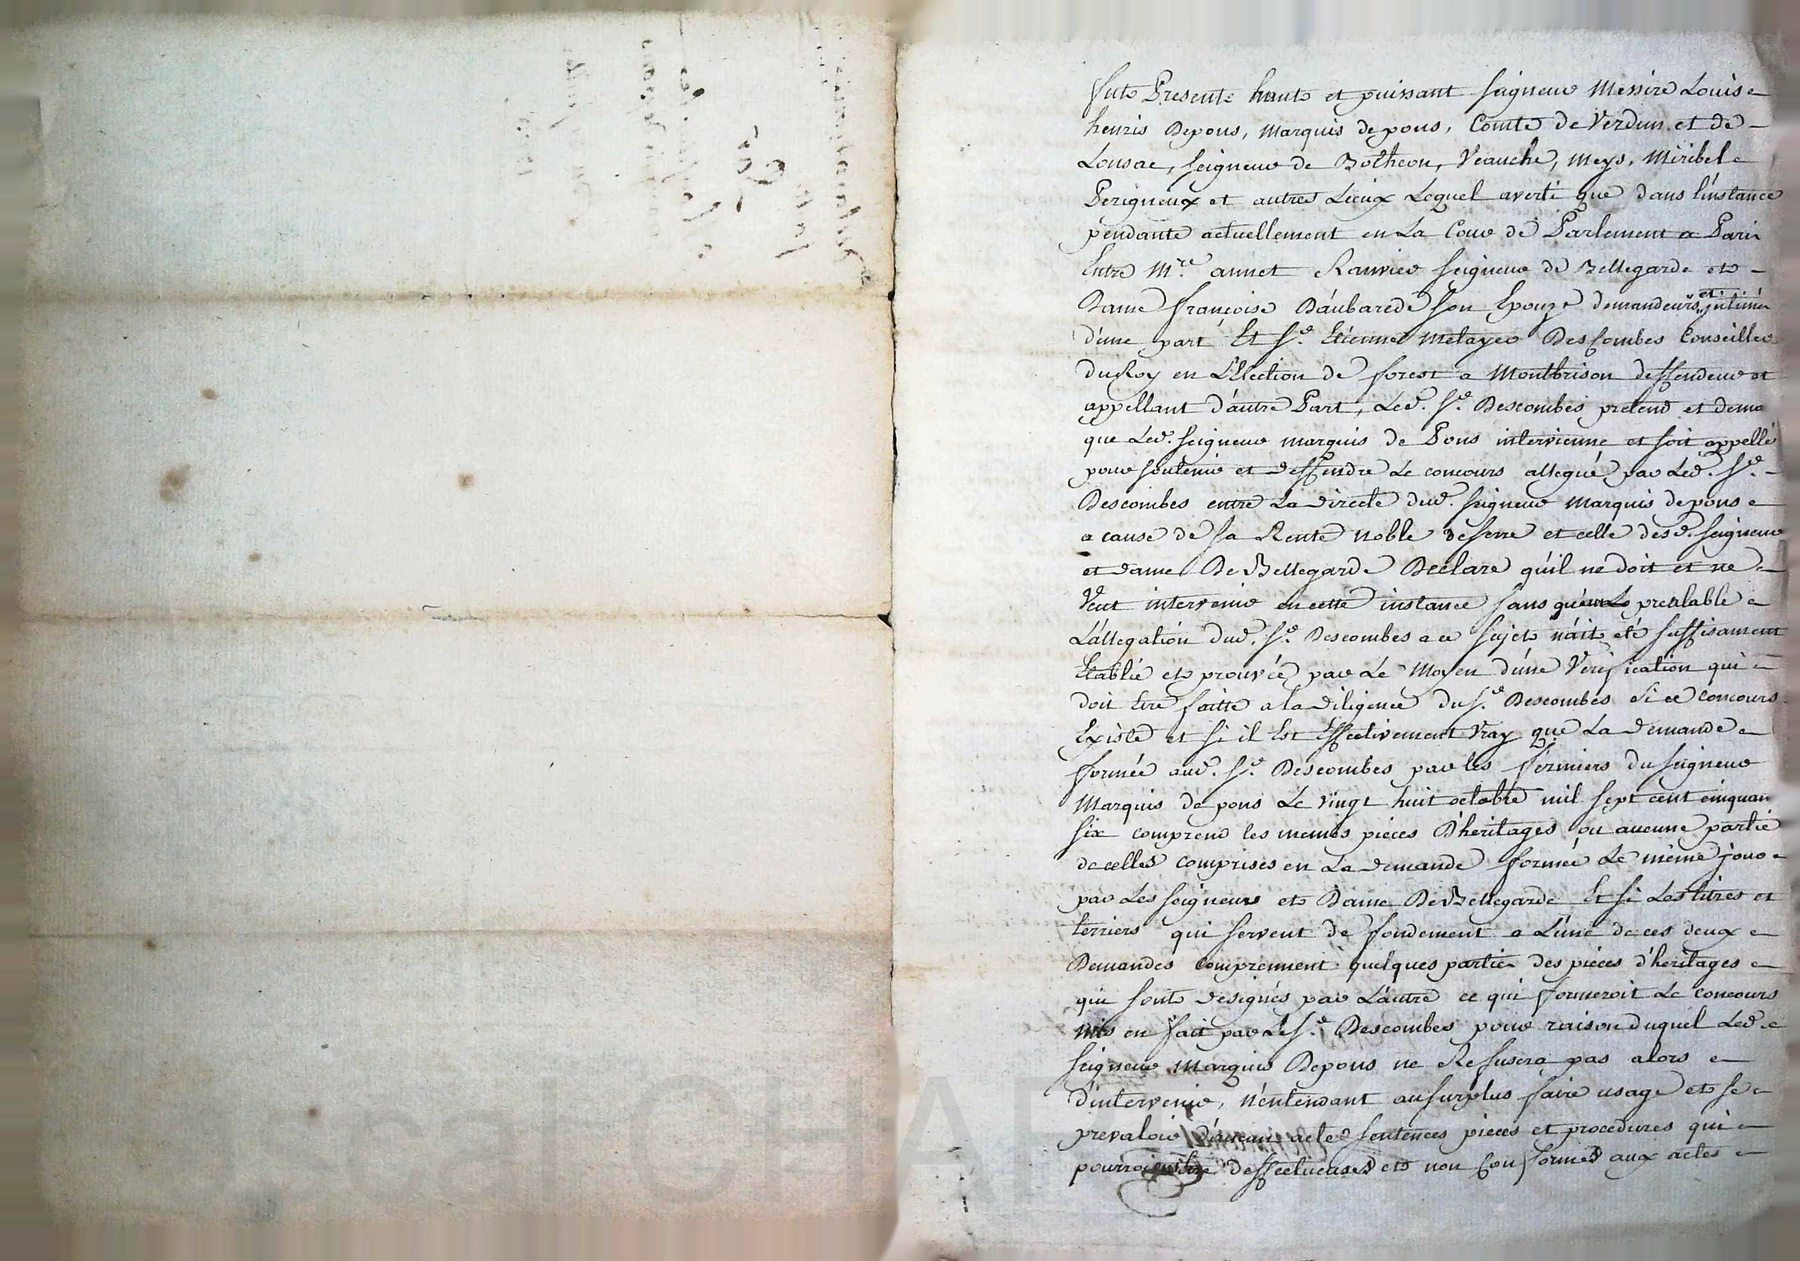 fute Presente haute et puissant seigneur Messire Louis
henris Depons, Marquis de pons, Comte de Verdun et de
Lonsac, seigneur de Botheon, Veauche, Meys, Miribel
Perigneux et autres Lieux Lequel averti que dans l'instance
pendante actuellement en La Cour de Parlement a Paris
Entre Mre. annet Ranvier seigneur de Bellegarde et
Dame françoise D'aubarede son Epouze demandeurs et intimés
d'une part Et Sr. Etienne Metayer Descombes Conseiller
du Roy en L'Election de forest a Montbrison deffendeur et
appellant d'autre Part, Led. Sr. Descombes pretend et demo
que Led. seigneur marquis de Pons intervienne et soit appellé
pour soutenir et deffendre Le concours allegué par Led. Sr.
Descombes entre La directe dud. seigneur Marquis de pons
a cause de sa Rente noble et celle desd. seigneur
et dame De Bellegarde Declare qu'il ne doit et ne
Veut intervenir en cette instance sans qu'au prealable
L'allegation dud. Sr. Descombes a ce sujet n'ait eté suffisament
Etablie et prouvée par Le Moyen d'une Verification qui
doit Etre faitte a la diligence du Sr. Descombes si ce concours
Existe et si il Est Effectivement Vray que La demande
formée aud. Sr. Descombes par les fermiers du seigneur
Marquis de pons Le vingt huit octobre mil sept cent cinquan
six comprend les memes pieces D'heritages ou aucune partie
de celles comprises en La demande formée Le même jour
par Les seigneur et Dame De Bellegarde Et si Les titres et
terriers qui servent de fondement a L'une de ces deux
Demandes comprennent quelques partie des pieces d'heritages
qui sont designés par L'autre ce qui formeroit Le concours
mis en fait par Le Sr. Descombes pour raison duquel Led.
seigneur Marquis Depons ne Refusera pas alors
d'intervenir, N'entendant au surplus faire usage et se
prevaloir d'aucun acte sentences pieces et procedures qui
deffectueuses et non Conformes aux actes
LOHAR